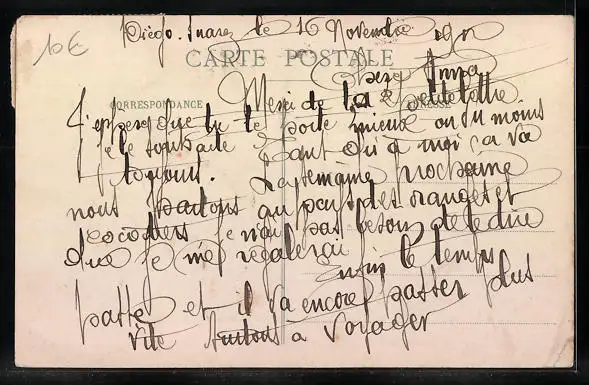 10€
Diégo-Suarez le 16 Novembre
CARTE POSTALE
Merci de ta
CORRESPONDANCE
J'espère que tu te porte mieux ou du moins
je le souhaite quant à moi sa va
toujours. La semaine prochaine
nous partons au pays des oranges et
cocotiers je n'ai pas besoin de te dire
que je me régalerai
enfin le temps
passe et il va encore passer plus
vite surtout a voyager